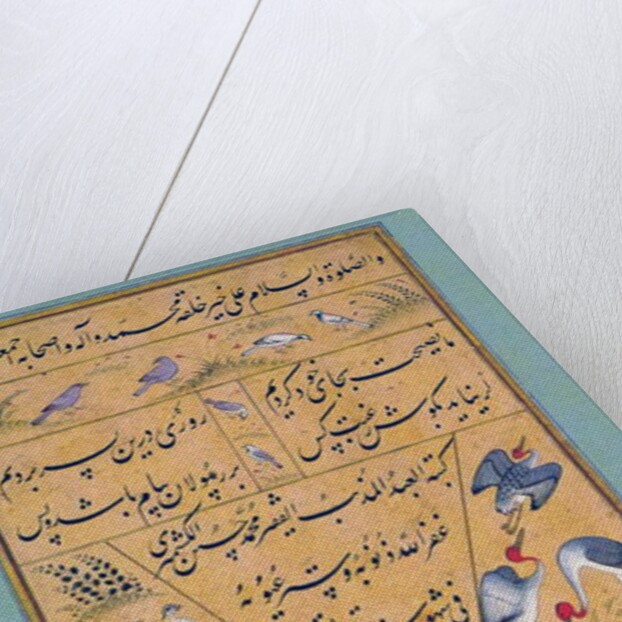 والصلوة والسلام علی خیر خلقه محمد و آله و اصحابه
ما نصیحت بجای خود کردیم
روزی درین بسر بردیم
گر نیاید بگوش رغبت کس
بر رسولان پیام باشد و بس
کتبه العبد المذنب الفقیر محمد حسین الکشمیری
غفر الله ذنوبه و ستر عیوبه
فی شهور